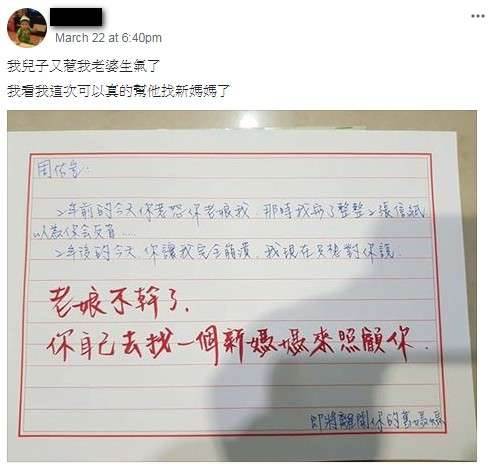 March 22 at 6:40pm
我兒子又惹我老婆生氣了
我看我這次可以真的幫他找新媽媽了
2年前的今天你惹怒你老娘我, 那時我寫了整整2張信紙
以為你會反省....
2年後的今天, 你讓我完全崩潰, 我現在只想對你說
老娘不幹了.
你自己去找一個新媽媽來照顧你.
即將離開你的舊媽媽